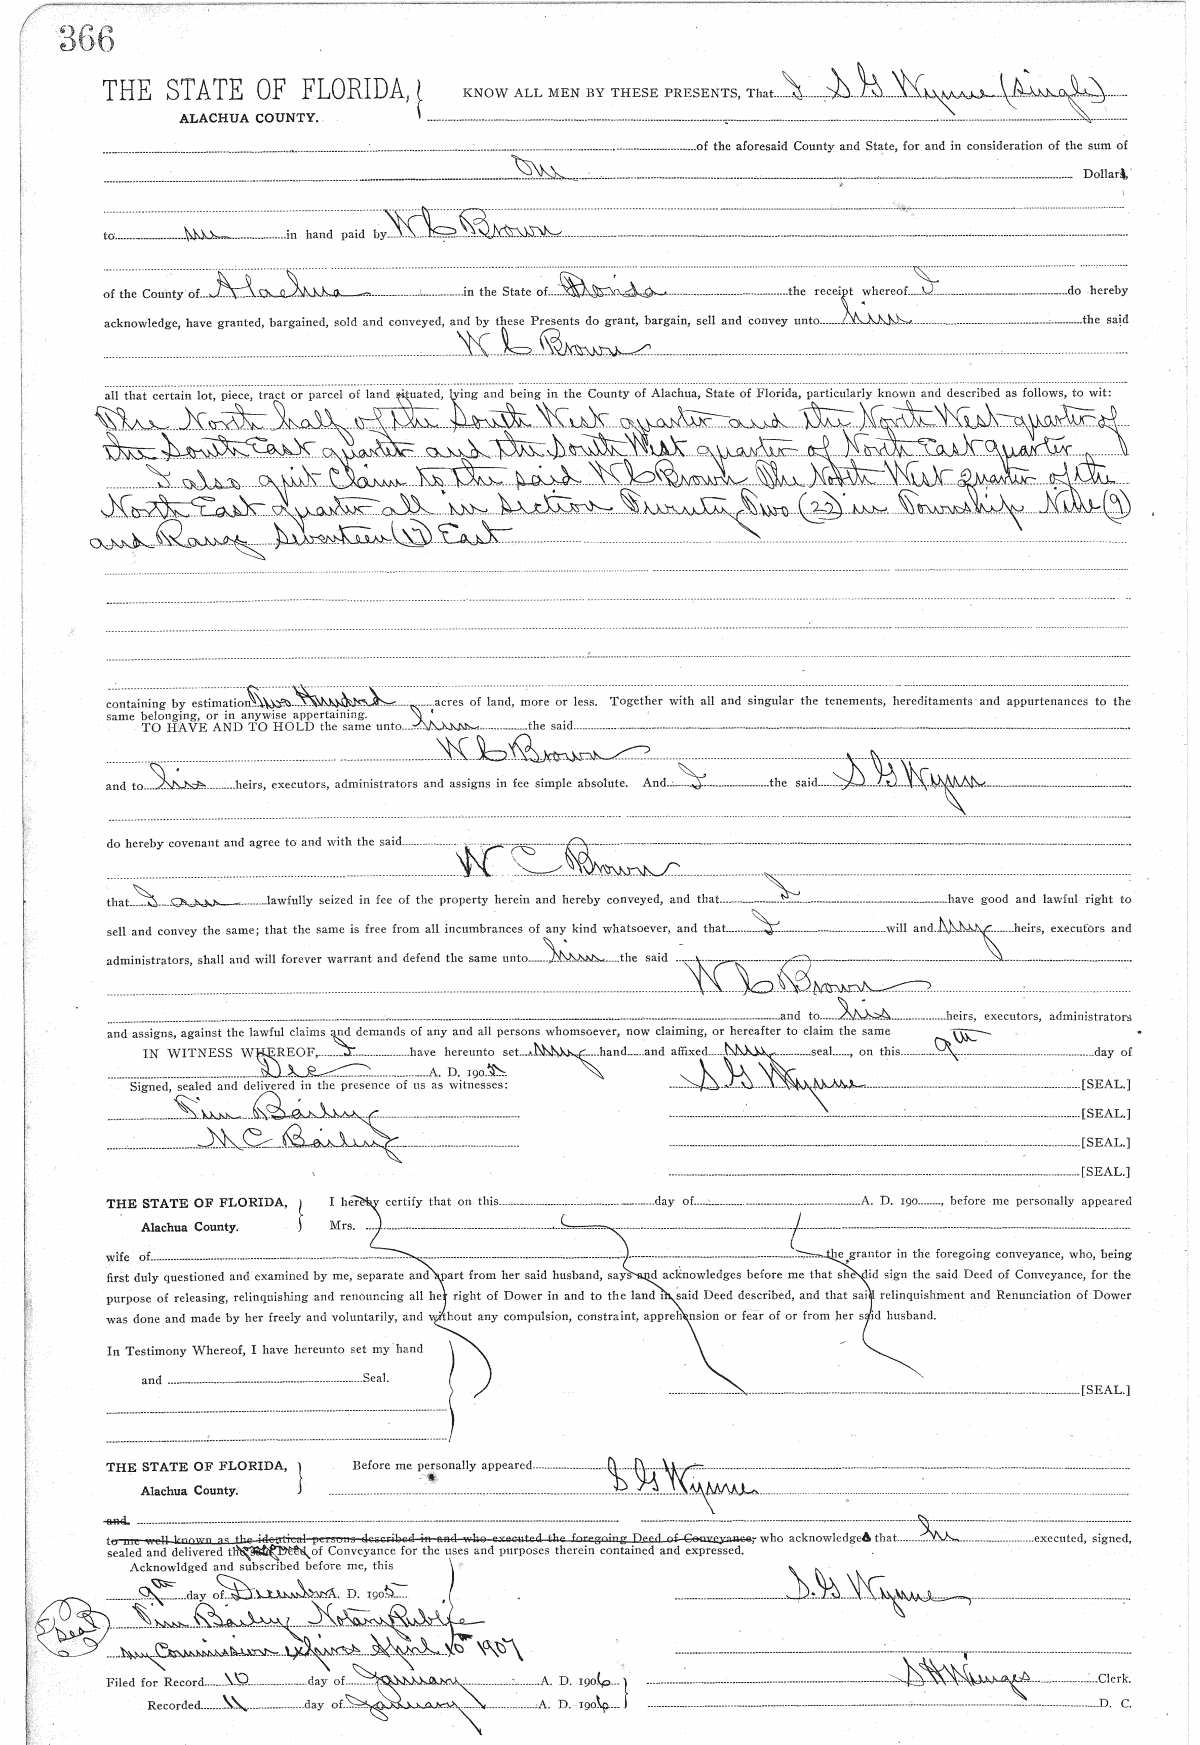 366
THE STATE OF FLORIDA, KNOW ALL MEN BY THESE PRESENTS, That I S G Wynne (single)
ALACHUA COUNTY.
of the aforesaid County and State, for and in consideration of the sum of
One Dollar,
to me in hand paid by W C Brown
of the County of Alachua in the State of Florida the receipt whereof I do hereby
acknowledge, have granted, bargained, sold and conveyed, and by these Presents do grant, bargain, sell and convey unto him the said
W C Brown
all that certain lot, piece, tract or parcel of land situated, lying and being in the County of Alachua, State of Florida, particularly known and described as follows, to wit:
The North half of the South West quarter and the North West quarter of
the South East quarter and the South West quarter of North East quarter
I also quit Claim to the said W C Brown The North West quarter of the
North East quarter all in Section Twenty-Two (22) in Township Nine (9)
and Range Seventeen (17) East
containing by estimation Two Hundred acres of land, more or less. Together with all and singular the tenements, hereditaments and appurtenances to the
same belonging, or in anywise appertaining.
TO HAVE AND TO HOLD the same unto him the said
W C Brown
and to his heirs, executors, administrators and assigns in fee simple absolute. And I the said S G Wynn
do hereby covenant and agree to and with the said
W C Brown
that I am lawfully seized in fee of the property herein and hereby conveyed, and that I have good and lawful right to
sell and convey the same; that the same is free from all incumbrances of any kind whatsoever, and that I will and My heirs, executors and
administrators, shall and will forever warrant and defend the same unto him the said
W C Brown
and to his heirs, executors, administrators
and assigns, against the lawful claims and demands of any and all persons whomsoever, now claiming, or hereafter to claim the same
IN WITNESS WHEREOF, I have hereunto set my hand and affixed my seal, on this 9th day of
Dec A. D. 1905
Signed, sealed and delivered in the presence of us as witnesses: S G Wynne [SEAL.]
Tim Bailey [SEAL.]
M C Bailey [SEAL.]
[SEAL.]
THE STATE OF FLORIDA, I hereby certify that on this day of A. D. 190 , before me personally appeared
Alachua County. Mrs.
wife of the grantor in the foregoing conveyance, who, being
first duly questioned and examined by me, separate and apart from her said husband, says and acknowledges before me that she did sign the said Deed of Conveyance, for the
purpose of releasing, relinquishing and renouncing all her right of Dower in and to the land in said Deed described, and that said relinquishment and Renunciation of Dower
was done and made by her freely and voluntarily, and without any compulsion, constraint, apprehension or fear of or from her said husband.
In Testimony Whereof, I have hereunto set my hand
and Seal.
[SEAL.]
THE STATE OF FLORIDA, Before me personally appeared
Alachua County. S G Wynne
and
to me well known as the identical persons described in and who executed the foregoing Deed of Conveyance, who acknowledged that he executed, signed,
sealed and delivered the Deed of Conveyance for the uses and purposes therein contained and expressed.
Acknowldged and subscribed before me, this
9th day of December A. D. 1905 S. G Wynne
Seal Tim Bailey Notary Public
my Commission expires April 10th 1907
Filed for Record 10 day of January A. D. 1906 S H Wienges Clerk.
Recorded 11 day of January A. D. 1906 D. C.